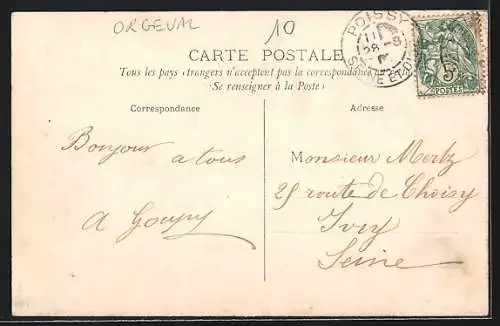 ORGEVAL
10
POISSY
CARTE POSTALE
Tous les pays étrangers n'acceptent pas la correspondance
(Se renseigner à la Poste)
Correspondance
Adresse
5c
POSTES
Bonjour a tous
A Goupy
Monsieur Mertz
25 route de Choisy
Ivry
Seine